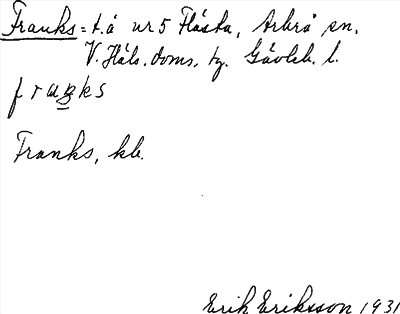 Franks = t.å nr 5 Flästa, Arbrå sn.
V. Häls. doms. tg. Gävleb. l.
fraŋks
Franks, kb.
Erik Eriksson 1931